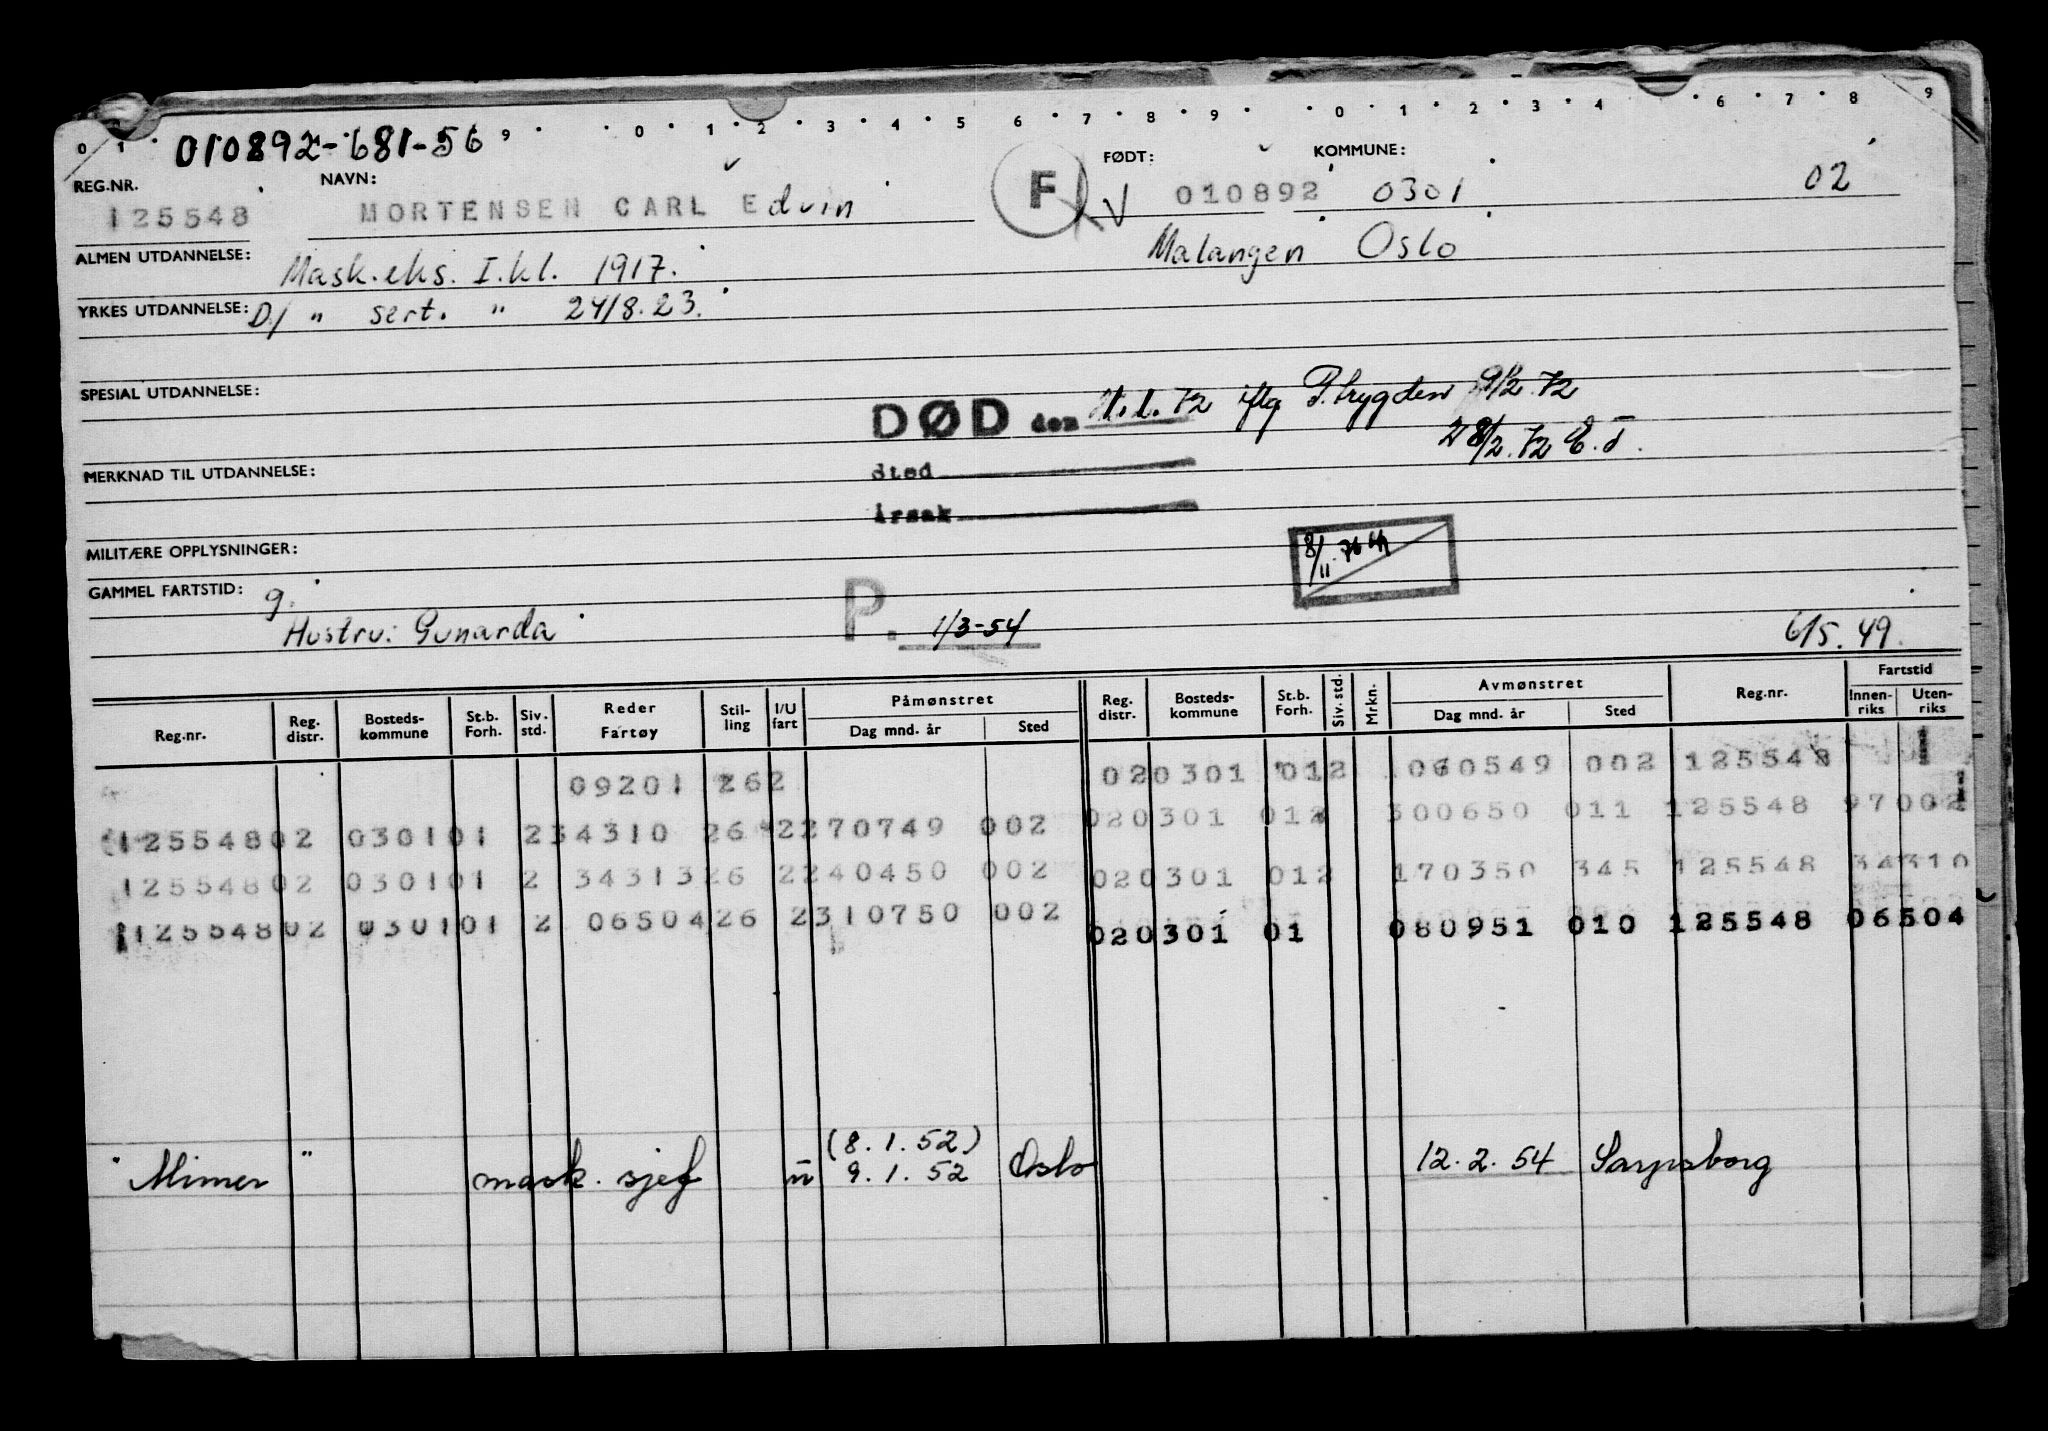 0 1 9 0 1 2 3 4 5 6 7 8 9 0 1 2 3 4 6 7 8 9
010892-681-56
REG.NR. NAVN: FØDT: KOMMUNE:
125548 MORTENSEN CARL Edvin F V 010892 0301 02
ALMEN UTDANNELSE: Mask.eks. I.kl. 1917. Malangen Oslo
YRKES UTDANNELSE: D/ " sert. " 24/8.23.
SPESIAL UTDANNELSE:
DØD den 72 iflg P.trygden 9/2.72
28/2.72 E.T.
MERKNAD TIL UTDANNELSE: sted
årsak
MILITÆRE OPPLYSNINGER: 8/11.76
GAMMEL FARTSTID: g.
Hustru: Gunarda P. 1/3-54 6/5.49.
Reg.nr. Reg. distr. Bosteds-kommune St.b. Forh. Siv. std. Reder Fartøy Stil-ling I/U fart Påmønstret Dag mnd. år Sted Reg. distr. Bosteds-kommune St.b. Forh. Siv. std. Mrkn. Avmønstret Dag mnd. år Sted Reg.nr. Fartstid Innen-riks Uten-riks
09201 262 020301 012 060549 002 125548
12554802 030101 234310 26 2270749 002 020301 012 300650 011 125548 97002
12554802 030101 2 3431326 2240450 002 020301 012 170350 345 125548 34310
12554802 030101 2 0650426 2310750 002 020301 01 080951 010 125548 06504
(8.1.52)
"Mimer" mask. sjef u 9.1.52 Oslo 12.2.54 Sarpsborg